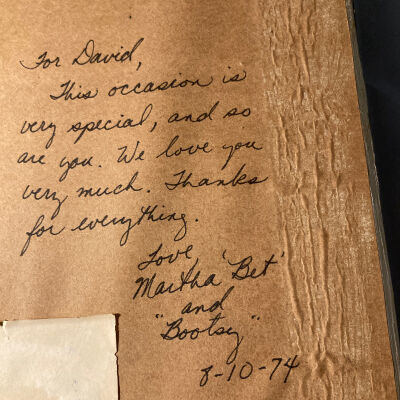 For David,
This occasion is
very special, and so
are you. We love you
very much. Thanks
for everything.
Love,
Martha 'Bet'
and
"Bootsy"
8-10-74